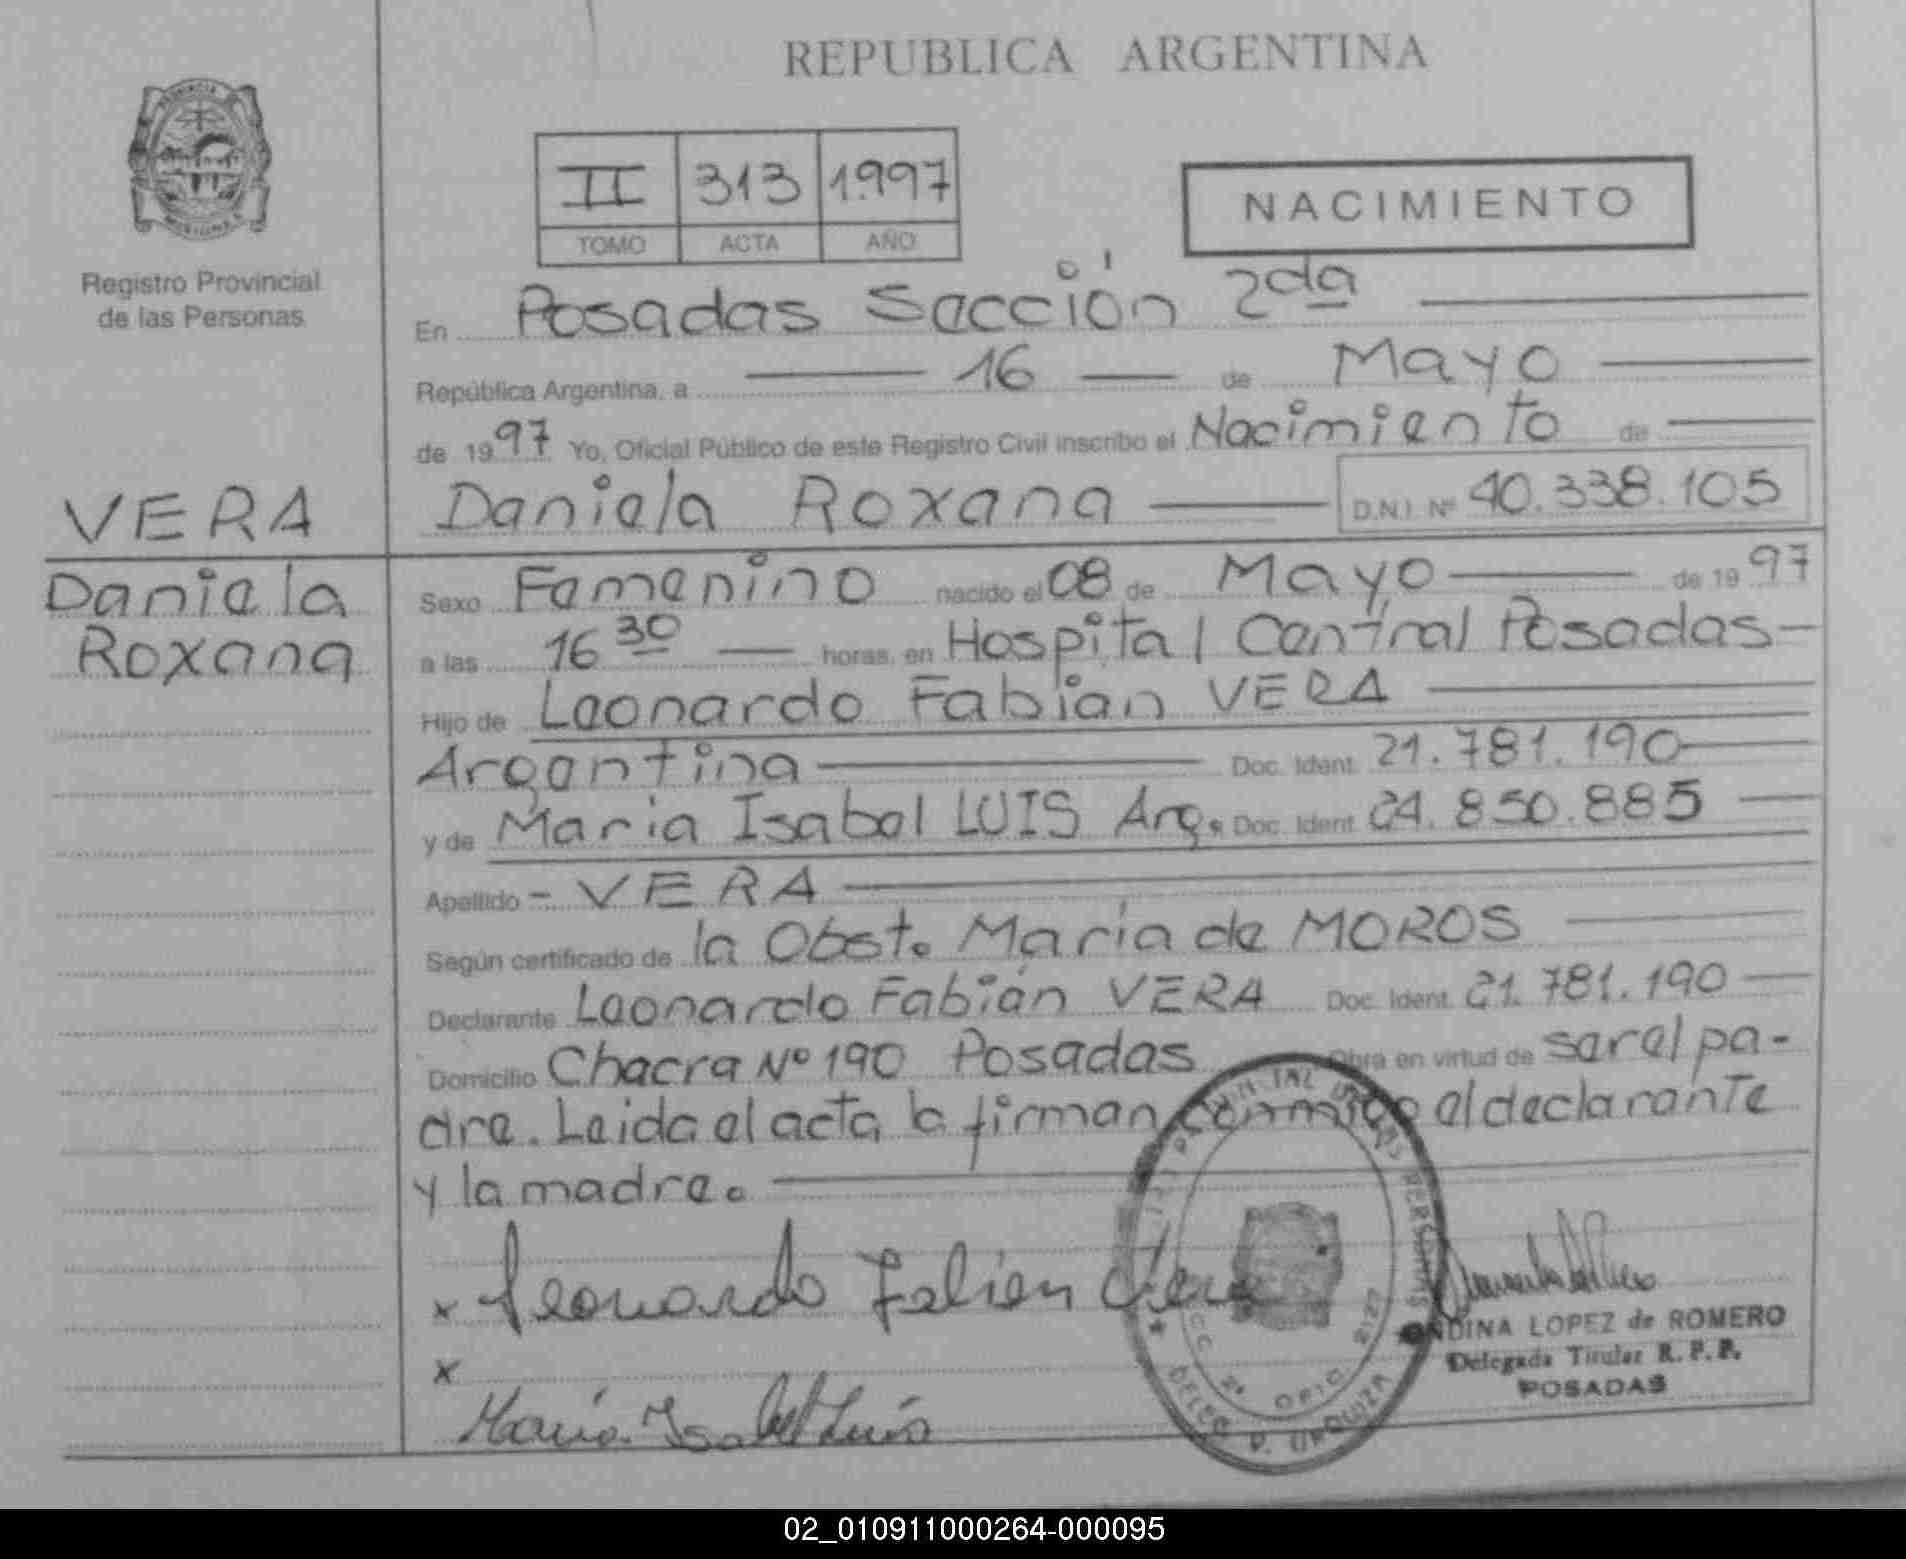 REPUBLICA ARGENTINA
II 313 1.997
TOMO ACTA AÑO
NACIMIENTO
Registro Provincial
de las Personas
En Posadas Sección 2da
República Argentina, a 16 de Mayo
de 1997 Yo, Oficial Público de este Registro Civil inscribo el Nacimiento de
Daniela Roxana D.N.I. Nº 40.338.105
VERA
Daniela
Roxana
Sexo Femenino nacido el 08 de Mayo de 1997
a las 16 30 horas, en Hospital Central Posadas
Hijo de Leonardo Fabian VERA
Argentina Doc. Ident. 21.781.190
y de Maria Isabel LUIS Arg. Doc. Ident. 24.850.885
Apellido - VERA
Según certificado de la Obst. Maria de MOROS
Declarante Leonardo Fabián VERA Doc. Ident. 21.781.190
Domicilio Chacra Nº 190 Posadas Obra en virtud de ser el pa-
dre. Leida el acta la firman conmigo el declarante
y la madre.
x Leonardo Fabian Vera
x
Maria Isabel Luis
LOPEZ de ROMERO
Delegada Titular R. P. P.
POSADAS
02_010911000264-000095